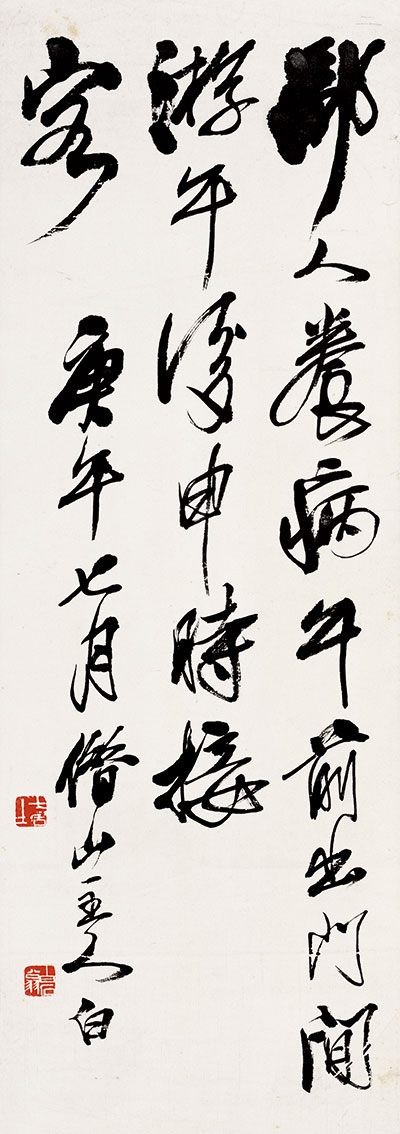 鄙人養病午前出門閒
游午後申時接
客 庚午七月借山主人白